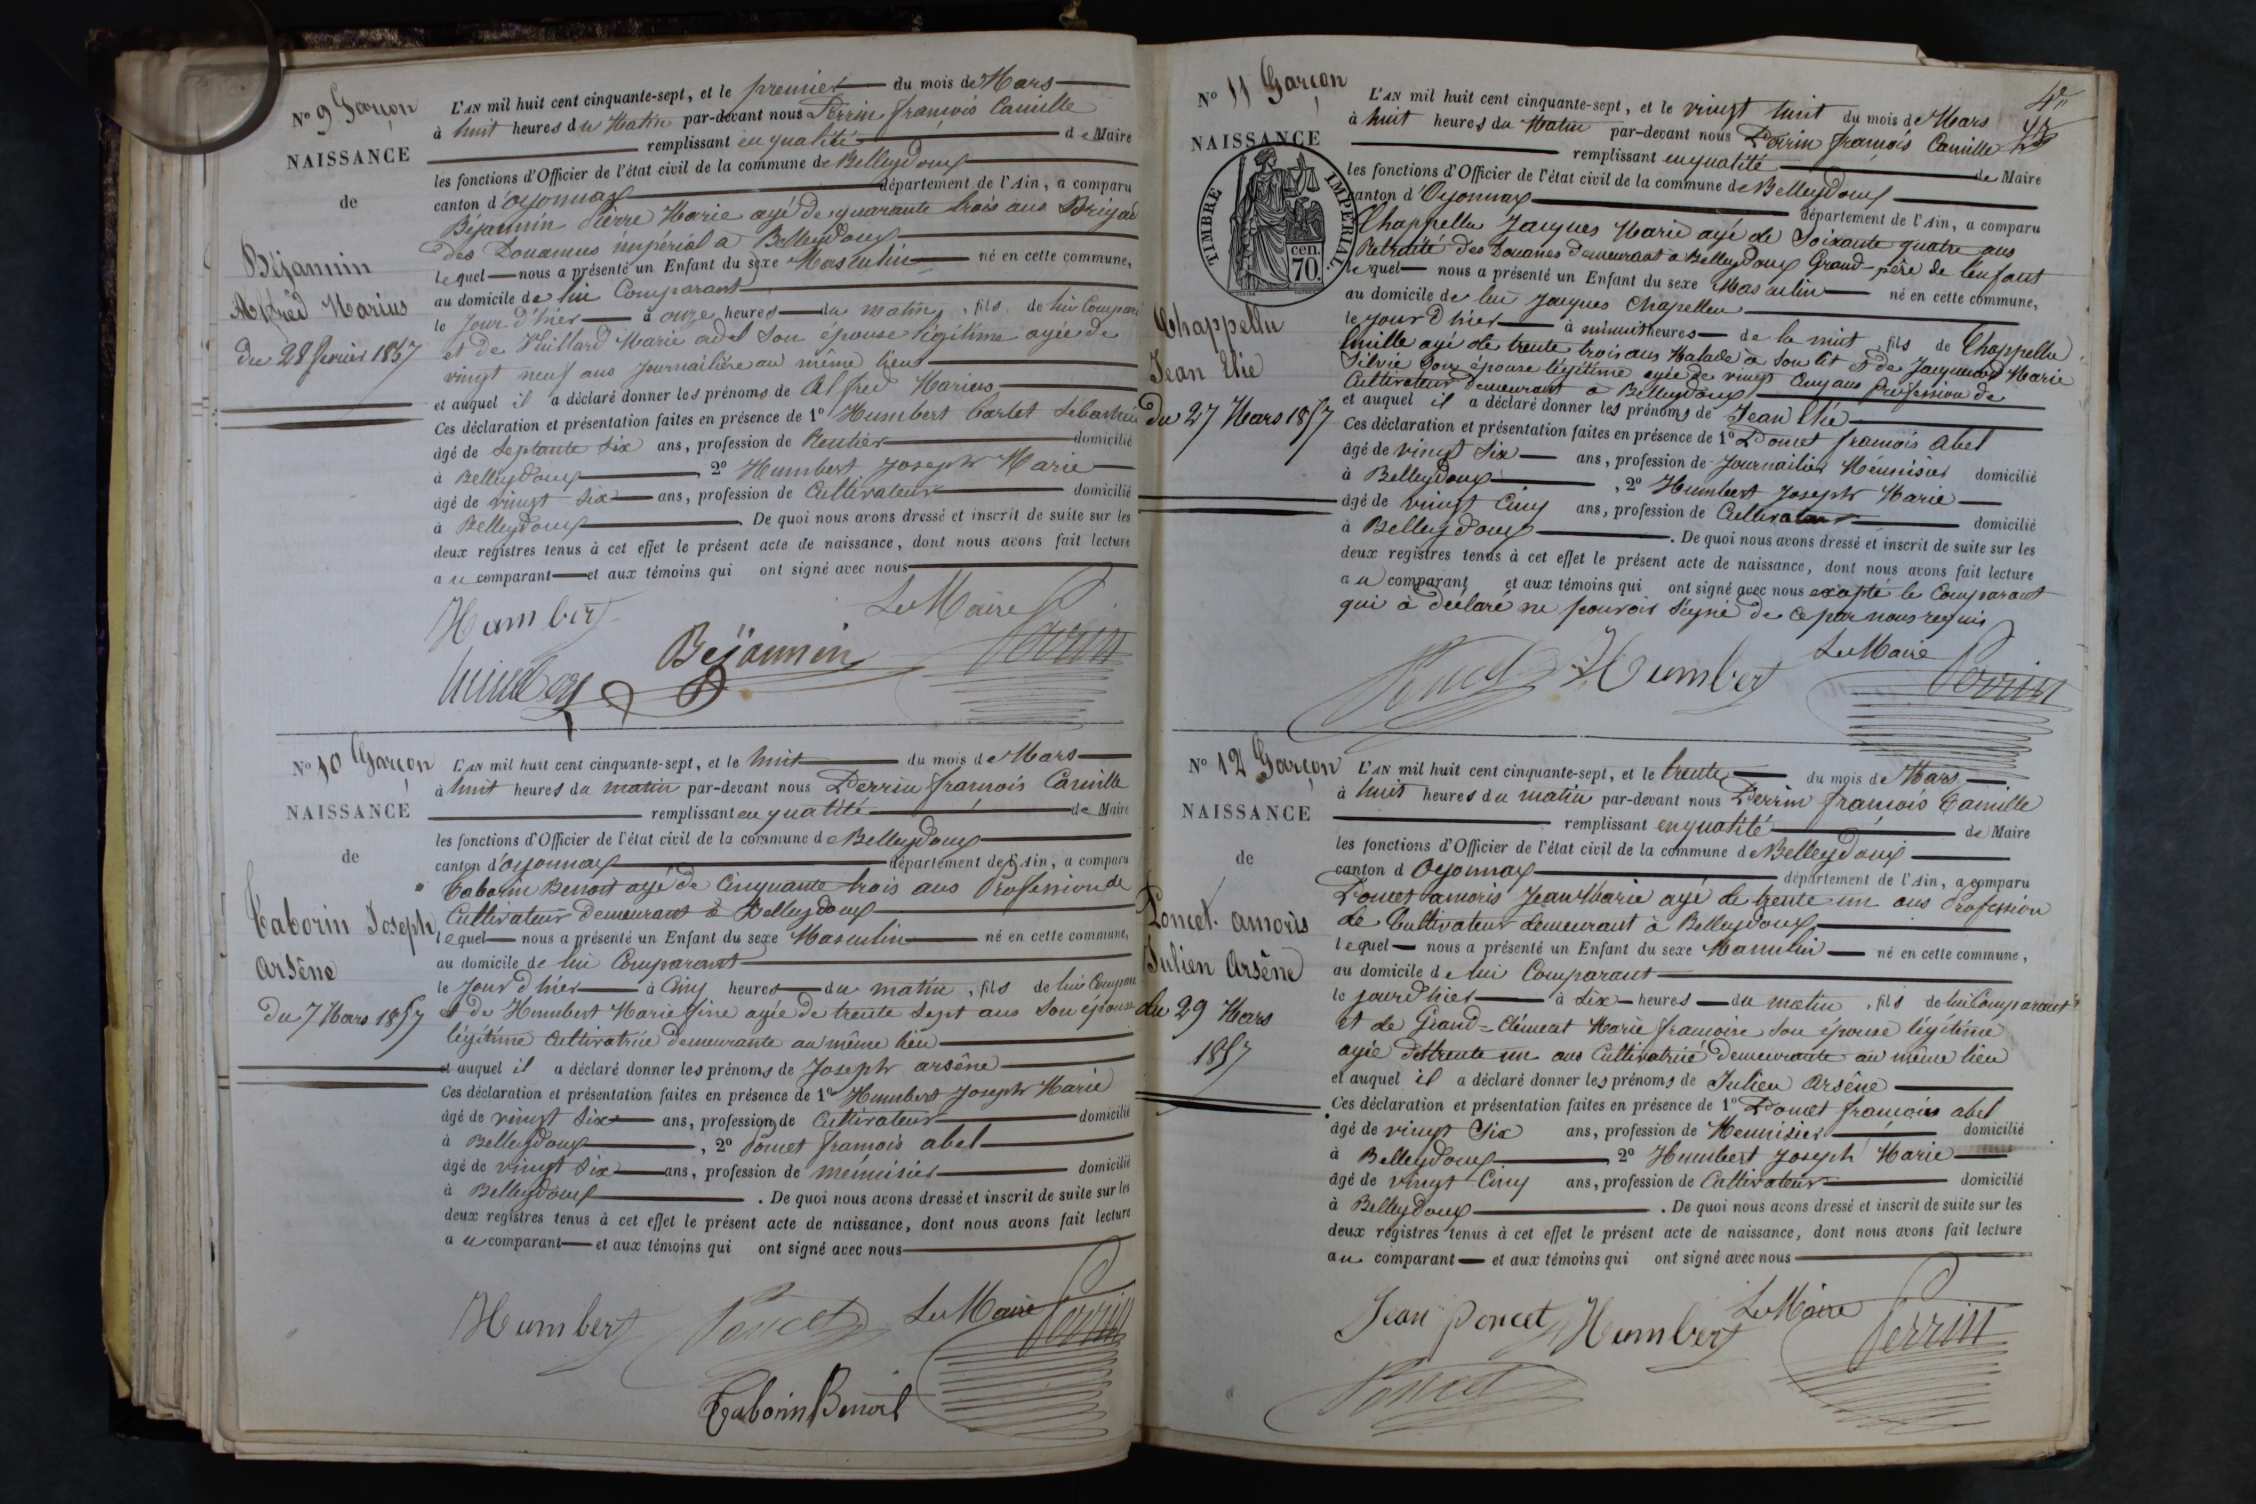 N° 9 Garçon
NAISSANCE
de
Béjannin
Alfred Marius
du 28 février 1857
L'AN mil huit cent cinquante-sept, et le premier du mois de Mars
à huit heures du Matin par-devant nous Perrin françois Camille
remplissant en qualité de Maire
les fonctions d'Officier de l'état civil de la commune de Belleydoux
canton d'oyonnax département de l'Ain, a comparu
Béjannin Pierre Marie agé de quarante trois ans Brigad
des Douannes impérial à Belleydoux
lequel nous a présenté un Enfant du sexe Masculin né en cette commune,
au domicile de lui Comparant
le Jour d'hier à onze heures du matin, fils de lui Compar
et de Vuillard Marie adel son épouse légitime agée de
vingt neuf ans Journalière au même lieu
et auquel il a déclaré donner les prénoms de Alfred Marius
Ces déclaration et présentation faites en présence de 1° Humbert Carlet Sébastien
âgé de Septante Six ans, profession de Rentier domicilié
à Belleydoux, 2° Humbert Joseph Marie
âgé de vingt Six ans, profession de Cultivateur domicilié
à Belleydoux. De quoi nous avons dressé et inscrit de suite sur les
deux registres tenus à cet effet le présent acte de naissance, dont nous avons fait lecture
au comparant et aux témoins qui ont signé avec nous
Humbert Le Maire
Béjannin Perrin
N° 10 Garçon
NAISSANCE
de
Taborin Joseph
Arsêne
du 7 Mars 1857
L'AN mil huit cent cinquante-sept, et le huit du mois de Mars
à huit heures du matin par-devant nous Perrin françois Camille
remplissant en qualité de Maire
les fonctions d'Officier de l'état civil de la commune de Belleydoux
canton d'oyonnax département de l'Ain, a comparu
Taborin Benoit agé de Cinquante trois ans Profession de
Cultivateur demeurant à Belleydoux
lequel nous a présenté un Enfant du sexe Masculin né en cette commune,
au domicile de lui Comparant
le Jour d'hier à Cinq heures du matin, fils de lui Compara
et de Humbert Marie fine agée de trente Sept ans Son épouse
légitime Cultivatrice demeurante au même lieu
et auquel il a déclaré donner les prénoms de Joseph arsêne
Ces déclaration et présentation faites en présence de 1° Humbert Joseph Marie
âgé de vingt Six ans, profession de Cultivateur domicilié
à Belleydoux, 2° Poncet francois abel
âgé de vingt Six ans, profession de menuisier domicilié
à Belleydoux. De quoi nous avons dressé et inscrit de suite sur les
deux registres tenus à cet effet le présent acte de naissance, dont nous avons fait lecture
au comparant et aux témoins qui ont signé avec nous
Humbert Poncet Le Maire Perrin
Taborin Benoit
N° 11 Garçon
NAISSANCE
TIMBRE IMPÉRIAL
70 cen.
Chappellu
Jean Elie
du 27 Mars 1857
L'AN mil huit cent cinquante-sept, et le vingt huit du mois de Mars
à huit heures du Matin par-devant nous Perrin françois Camille
remplissant en qualité de Maire
les fonctions d'Officier de l'état civil de la commune de Belleydoux
canton d'Oyonnax département de l'Ain, a comparu
Chappellu Jacques Marie agé de Soixante quatre ans
Retraité des Douanes demeurant à Belleydoux Grand-père de l'enfant
lequel nous a présenté un Enfant du sexe Masculin né en cette commune,
au domicile de lui Jacques Chapellu
le jour d'hier à minuit heures de la nuit, fils de Chappellu
Emille agé de trente trois ans Malade à son lit et de Jacquenod Marie
Silvie Son épouse légitime agée de vingt Cinq ans Profession de
Cultivateur demeurant à Belleydoux
et auquel il a déclaré donner les prénoms de Jean Elie
Ces déclaration et présentation faites en présence de 1° Poncet francois Abel
âgé de vingt Six ans, profession de Journalier Ménuisier domicilié
à Belleydoux, 2° Humbert Joseph Marie
âgé de vingt Cinq ans, profession de Cultivateur domicilié
à Belleydoux. De quoi nous avons dressé et inscrit de suite sur les
deux registres tenus à cet effet le présent acte de naissance, dont nous avons fait lecture
au comparant et aux témoins qui ont signé avec nous excepté le Comparant
qui à déclaré ne pouvoir Signé de ce par nous requis
Poncet Humbert Le Maire Perrin
N° 12 Garçon
NAISSANCE
de
Poncet. amoris
Julien Arsêne
du 29 Mars
1857
L'AN mil huit cent cinquante-sept, et le trente du mois de Mars
à huit heures du matin par-devant nous Perrin françois Camille
remplissant en qualité de Maire
les fonctions d'Officier de l'état civil de la commune de Belleydoux
canton d Oyonnax département de l'Ain, a comparu
Poncet amoris Jean Marie agé de trente un ans Profession
de Cultivateur demeurant à Belleydoux
lequel nous a présenté un Enfant du sexe Masculin né en cette commune,
au domicile de lui Comparant
le jour d'hier à Six heures du matin, fils de lui Comparant
et de Grand-Clément Marie francoise Son épouse légitime
agée de trente un ans Cultivatrice demeurante au même lieu
et auquel il a déclaré donner les prénoms de Julien Arsêne
Ces déclaration et présentation faites en présence de 1° Poncet françois abel
âgé de vingt Six ans, profession de Menuisier domicilié
à Belleydoux, 2° Humbert Joseph Marie
âgé de vingt Cinq ans, profession de Cultivateur domicilié
à Belleydoux. De quoi nous avons dressé et inscrit de suite sur les
deux registres tenus à cet effet le présent acte de naissance, dont nous avons fait lecture
au comparant et aux témoins qui ont signé avec nous
Jean poncet Humbert Le Maire Perrin
Poncet